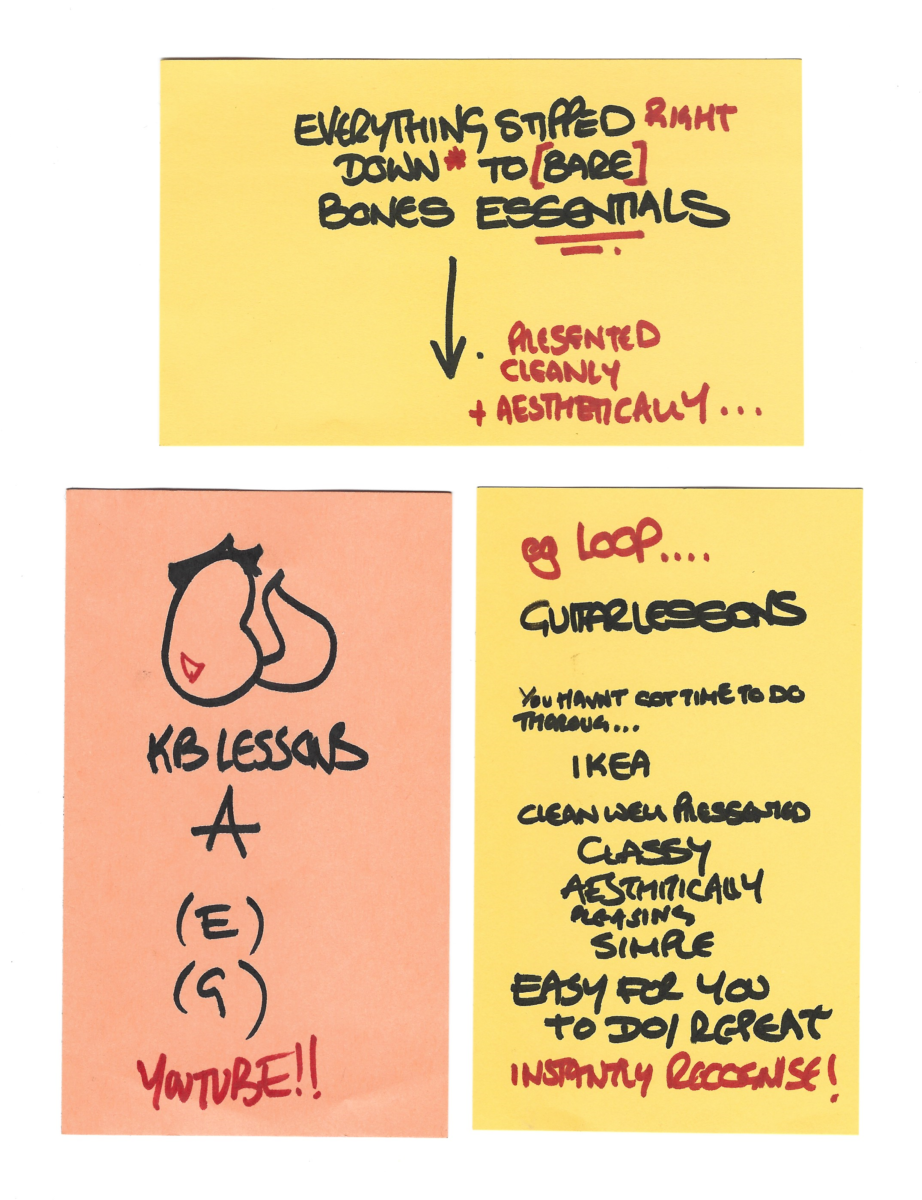 EVERYTHING STIPPED RIGHT
DOWN* TO [BARE]
BONES ESSENTIALS
. PRESENTED
CLEANLY
+ AESTHETICALLY...
KB LESSONS
A
(E)
(G)
YOUTUBE!!
eg LOOP....
GUITAR LESSONS
YOU HAVNT GOT TIME TO DO
THOROUG...
IKEA
CLEAN WELL PRESSENTED
CLASSY
AESTHITICALLY
PLEASING
SIMPLE
EASY FOR YOU
TO DO/REPEAT
INSTANTLY RECOGNISE!